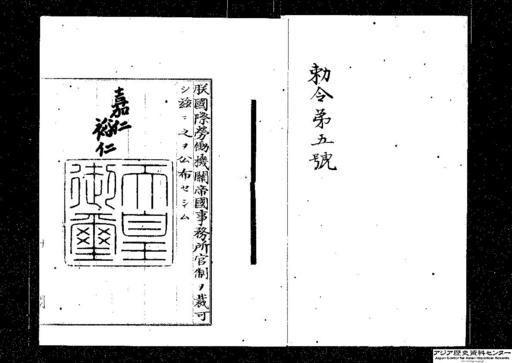 勅令第五號
朕國際勞働機關帝國事務所官制ヲ裁可
シ茲ニ之ヲ公布セシム
嘉仁
裕仁
天皇
御璽
アジア歴史資料センター
Japan Center for Asian Historical Records